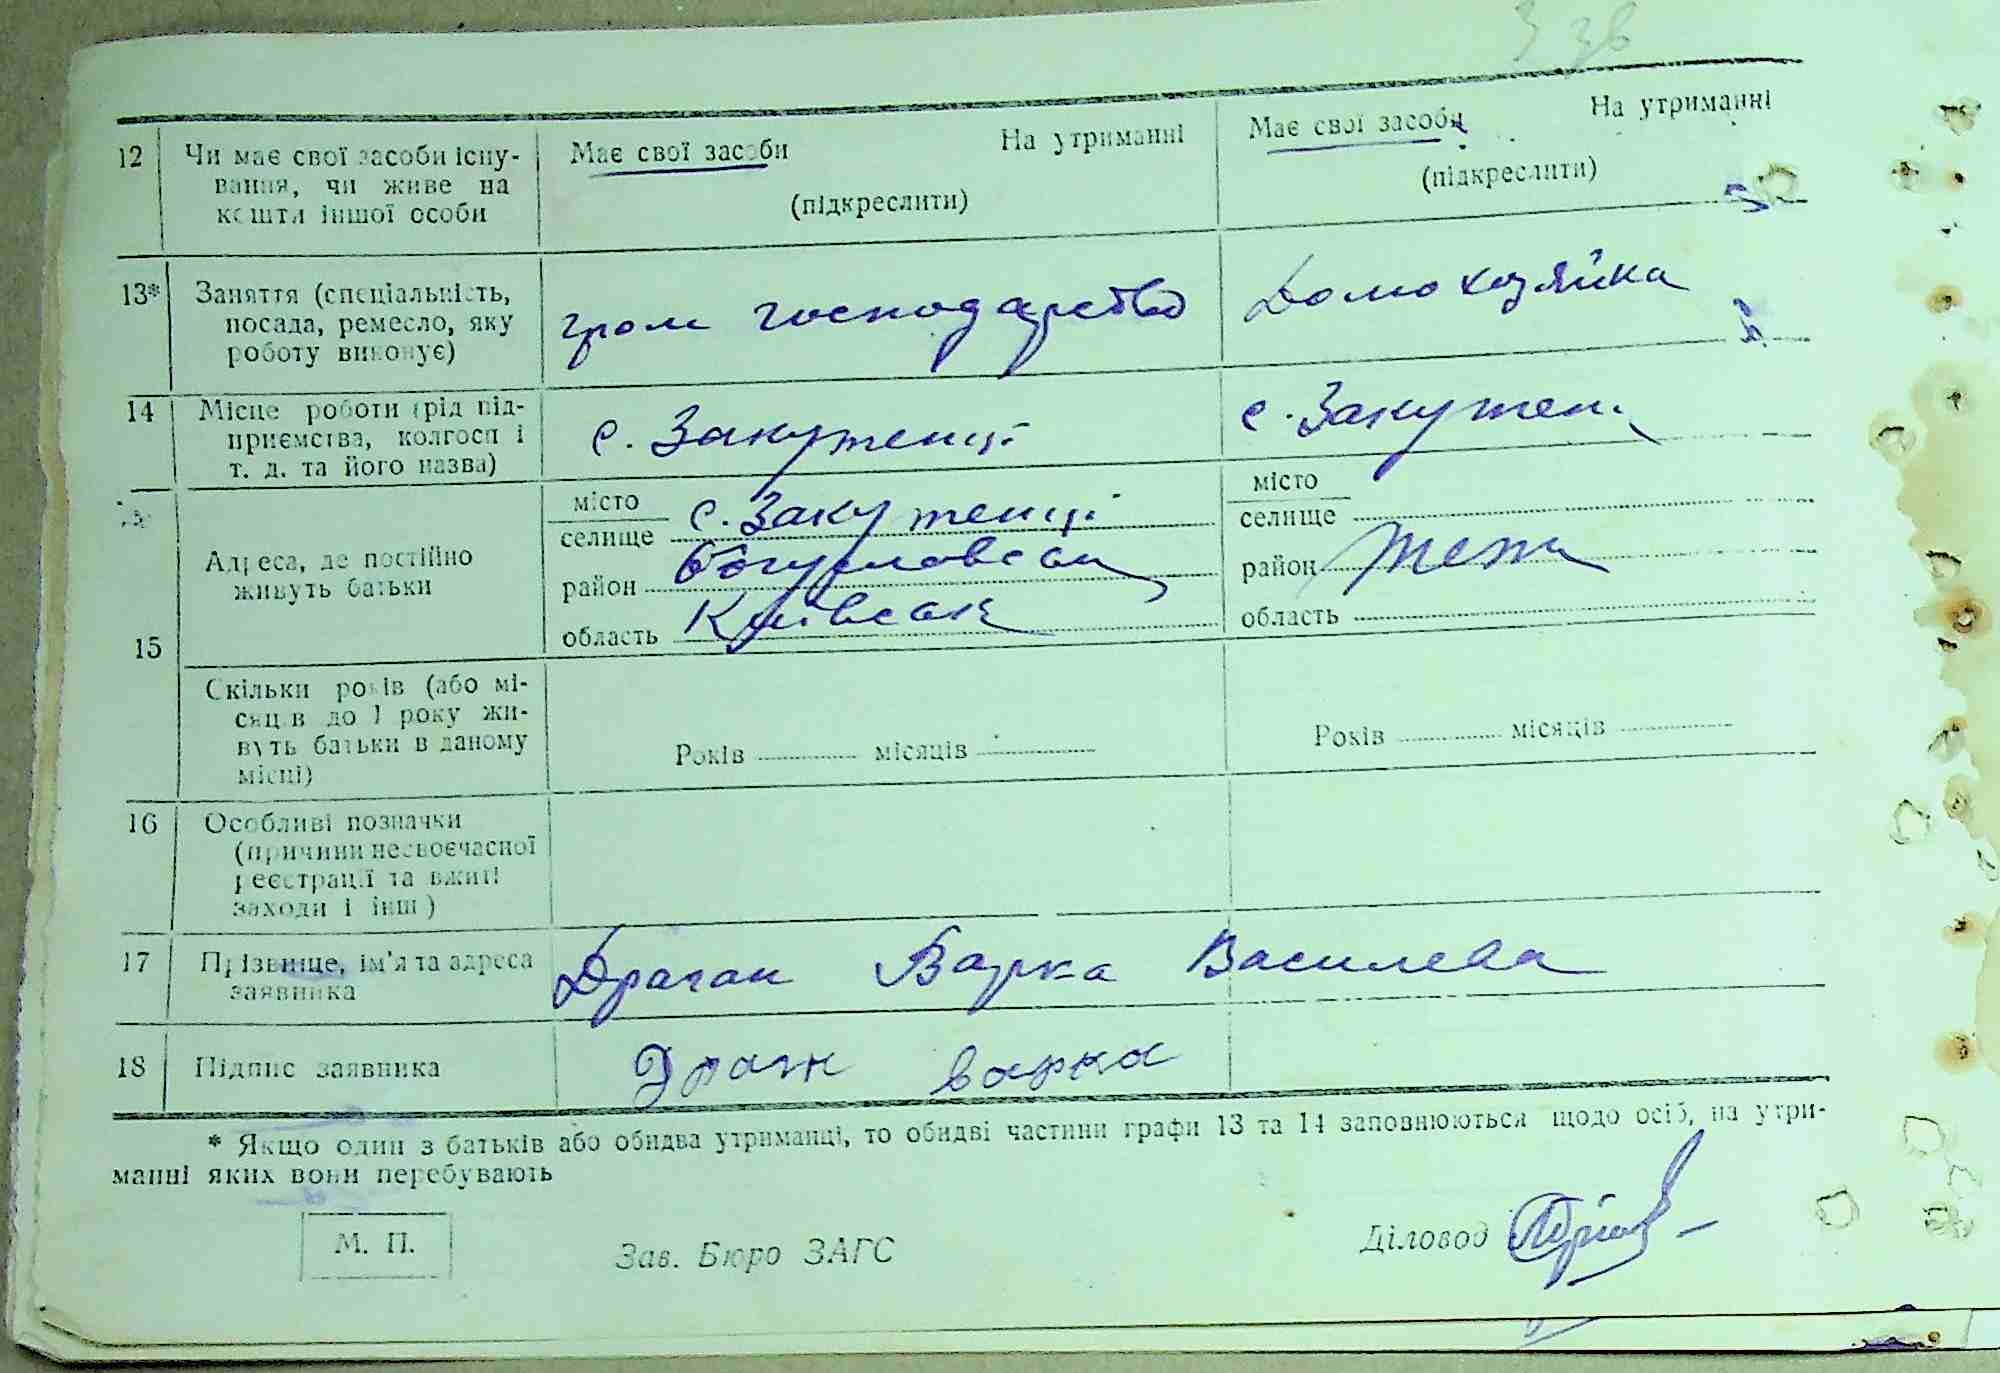 12 Чи має свої засоби існу-
вання, чи живе на
кошти іншої особи
Має свої засоби На утриманні
(підкреслити)
Має свої засоби На утриманні
(підкреслити)
13* Заняття (спеціальність,
посада, ремесло, яку
роботу виконує)
гром господарство
Домохозяйка
14 Місце роботи (рід під-
приємства, колгосп і
т. д. та його назва)
с. Закутенці
с. Закутенц
15 Адреса, де постійно
живуть батьки
місто
селище с. Закутенці
район Богуславськ
область Київськ
місто
селище
район теж
область
Скільки років (або мі-
сяців до 1 року жи-
вуть батьки в даному
місці)
Років місяців
Років місяців
16 Особливі позначки
(причини несвоєчасної
реєстрації та вжиті
заходи і інш)
17 Прізвище, ім'я та адреса
заявника
Драган Варка Василева
18 Підпис заявника
варка
* Якщо один з батьків або обидва утриманці, то обидві частини графи 13 та 14 заповнюються щодо осіб, на утри-
манні яких вони перебувають
М. П.
Зав. Бюро ЗАГС
Діловод